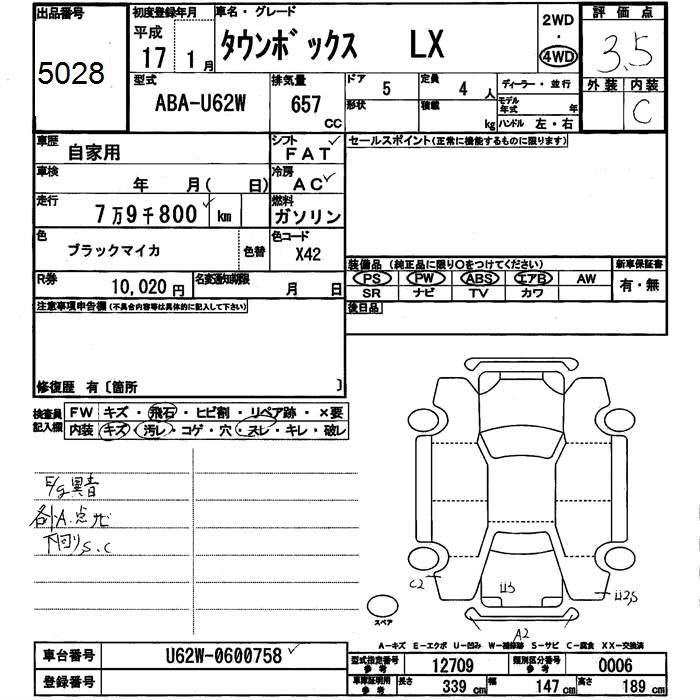 出品番号 5028
初度登録年月 平成 17 1月
車名・グレード タウンボックス LX
2WD・4WD
評価点 3.5
外装 内装 C
型式 ABA-U62W
排気量 657 CC
ドア 5 定員 4 人
形状 積載 kg
ディーラー・並行
モデル年式 年
ハンドル 左・右
車歴 自家用
シフト FAT
セールスポイント(正常に機能するものに限ります)
車検 年 月( 日)
冷房 AC
走行 7万9千800 km
燃料 ガソリン
色 ブラックマイカ 色替
色コード X42
装備品 (純正品に限り○をつけてください) 新車保証書
PS PW ABS エアB AW 有・無
SR ナビ TV カワ
R券 10,020円 名変通知期限 月 日
後日品
注意事項申告欄(不具合内容等は具体的に記入して下さい)
修復歴 有〔箇所 〕
検査員記入欄
FW キズ・飛石・ヒビ割・リペア跡・×要
内装 キズ・汚レ・コゲ・穴・スレ・キレ・破レ
E/g異音
各A.点サビ
下回りS.C
C2 U3 U2,S
A2
スペア
A-キズ E-エクボ U-凹み W-補修跡 S-サビ C-腐食 XX-交換済
車台番号 U62W-0600758
型式指定番号 参考 12709 類別区分番号 参考 0006
登録番号
車庫証明用 参考 長さ 339 cm 幅 147 cm 高さ 189 cm